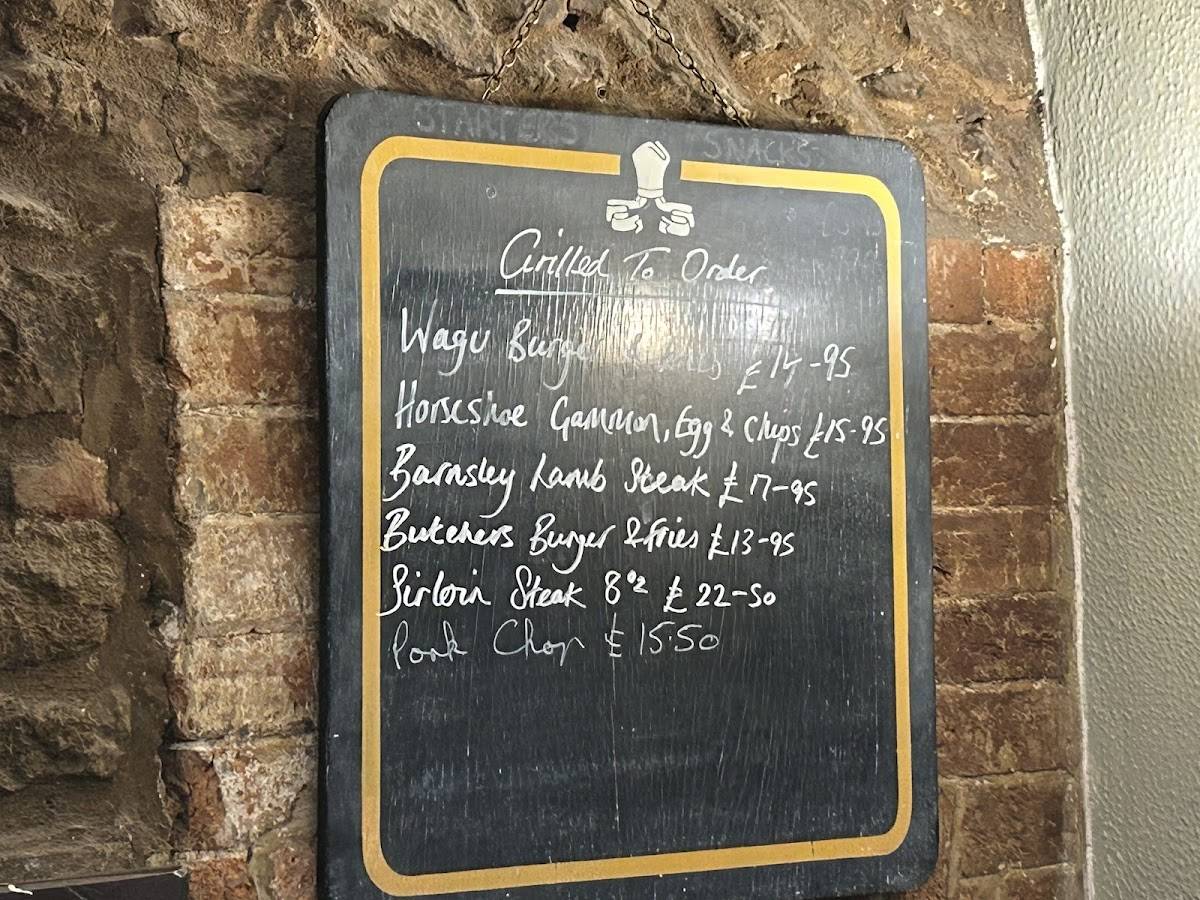 STARTERS
SNACKS
Grilled To Order
Wagu Burger £14-95
Horseshoe Gammon, Egg & Chips £15-95
Barnsley Lamb Steak £17-95
Butchers Burger & Fries £13-95
Sirloin Steak 8oz £22-50
Pork Chop £15.50